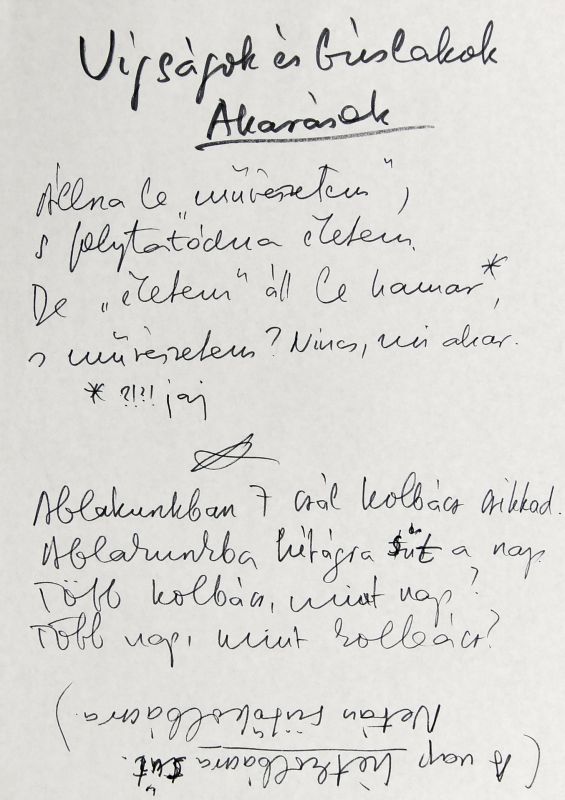 Vigságok és búslakok
Akarások
Állna le „művészetem”,
s folytatódna életem.
De „életem” áll le hamar*,
s művészetem? Nincs, mi akar.
* ?!?! jaj
Ablakunkban 7 szál kolbász csikkad.
Ablakunkba hétágra süt a nap
Több kolbász, mint nap?
Több nap, mint kolbász?
(A nap hétkolbászra süt.
Netán sütőkolbászra.)